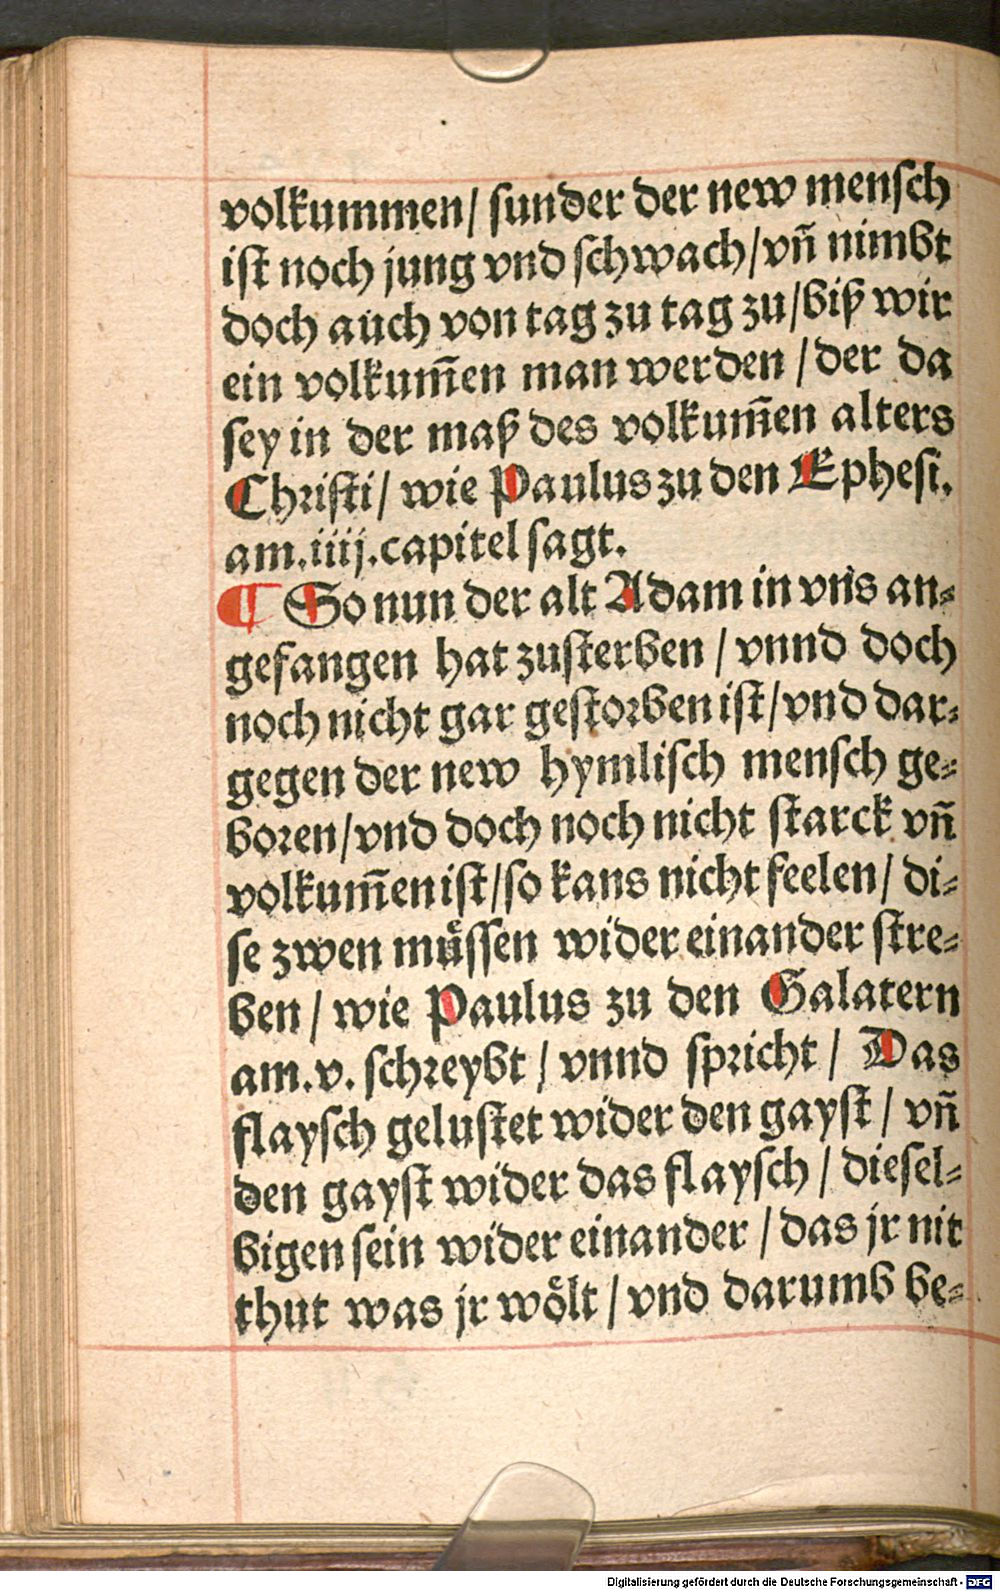 volkummen/ sunder der new mensch
ist noch jung vnd schwach/vn̄ nimbt
doch auch von tag zu tag zu/biß wir
ein volkum̄en man werden / der da
sey in der maß des volkum̄en alters
Christi/ wie Paulus zu den Ephesi.
am.iiij.capitel sagt.
¶ So nun der alt Adam in vns an⸗
gefangen hat zusterben / vnnd doch
noch nicht gar gestorben ist/vnd dar⸗
gegen der new hymlisch mensch ge⸗
boren/vnd doch noch nicht starck vn̄
volkum̄en ist/so kans nicht feelen/ di⸗
se zwen muͤssen wider einander stre⸗
ben / wie Paulus zu den Galatern
am.v. schreybt / vnnd spricht / Das
flaysch gelustet wider den gayst / vn̄
den gayst wider das flaysch / diesel⸗
bigen sein wider einander / das jr nit
thut was jr woͤlt / vnd darumb be⸗
Digitalisierung gefördert durch die Deutsche Forschungsgemeinschaft - DFG